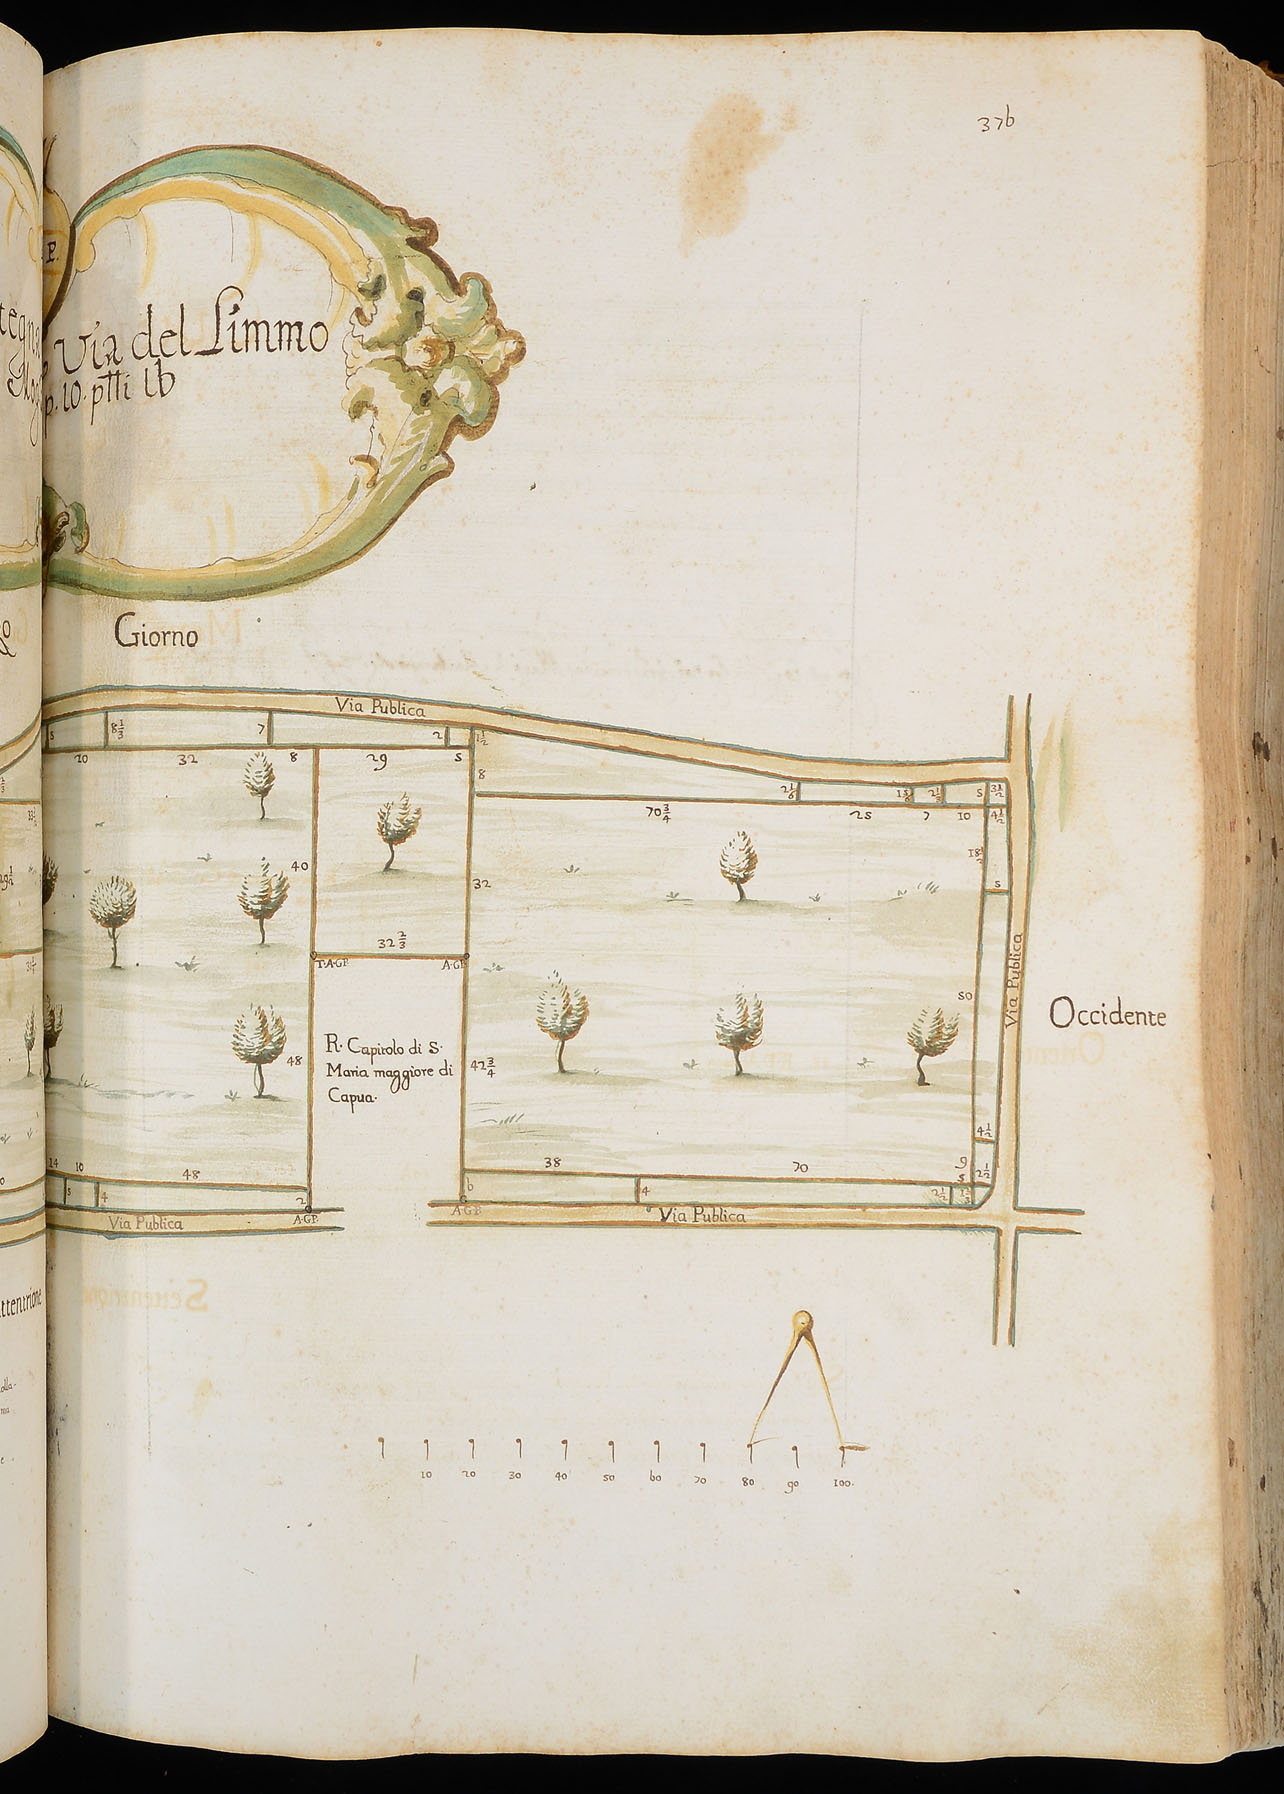 376
P.
Via del Limmo
p. 10. ptti 16
Giorno
Via Publica
5
8 1/3
7
2
1 1/2
20
32
8
29
5
8
70 3/4
2 1/6
25
7
10
5
3 1/2
4 1/2
18 1/2
5
40
32
32 2/3
T·A·GP.
A·GP.
Via Publica
50
Occidente
R. Capitolo di S.
Maria maggiore di
Capua.
48
42 3/4
4 1/2
14
10
48
38
70
9
5
2 1/2
5
4
2
6
4
2 1/2
Via Publica
A·GP.
A·GP.
Via Publica
10 20 30 40 50 60 70 80 90 100.